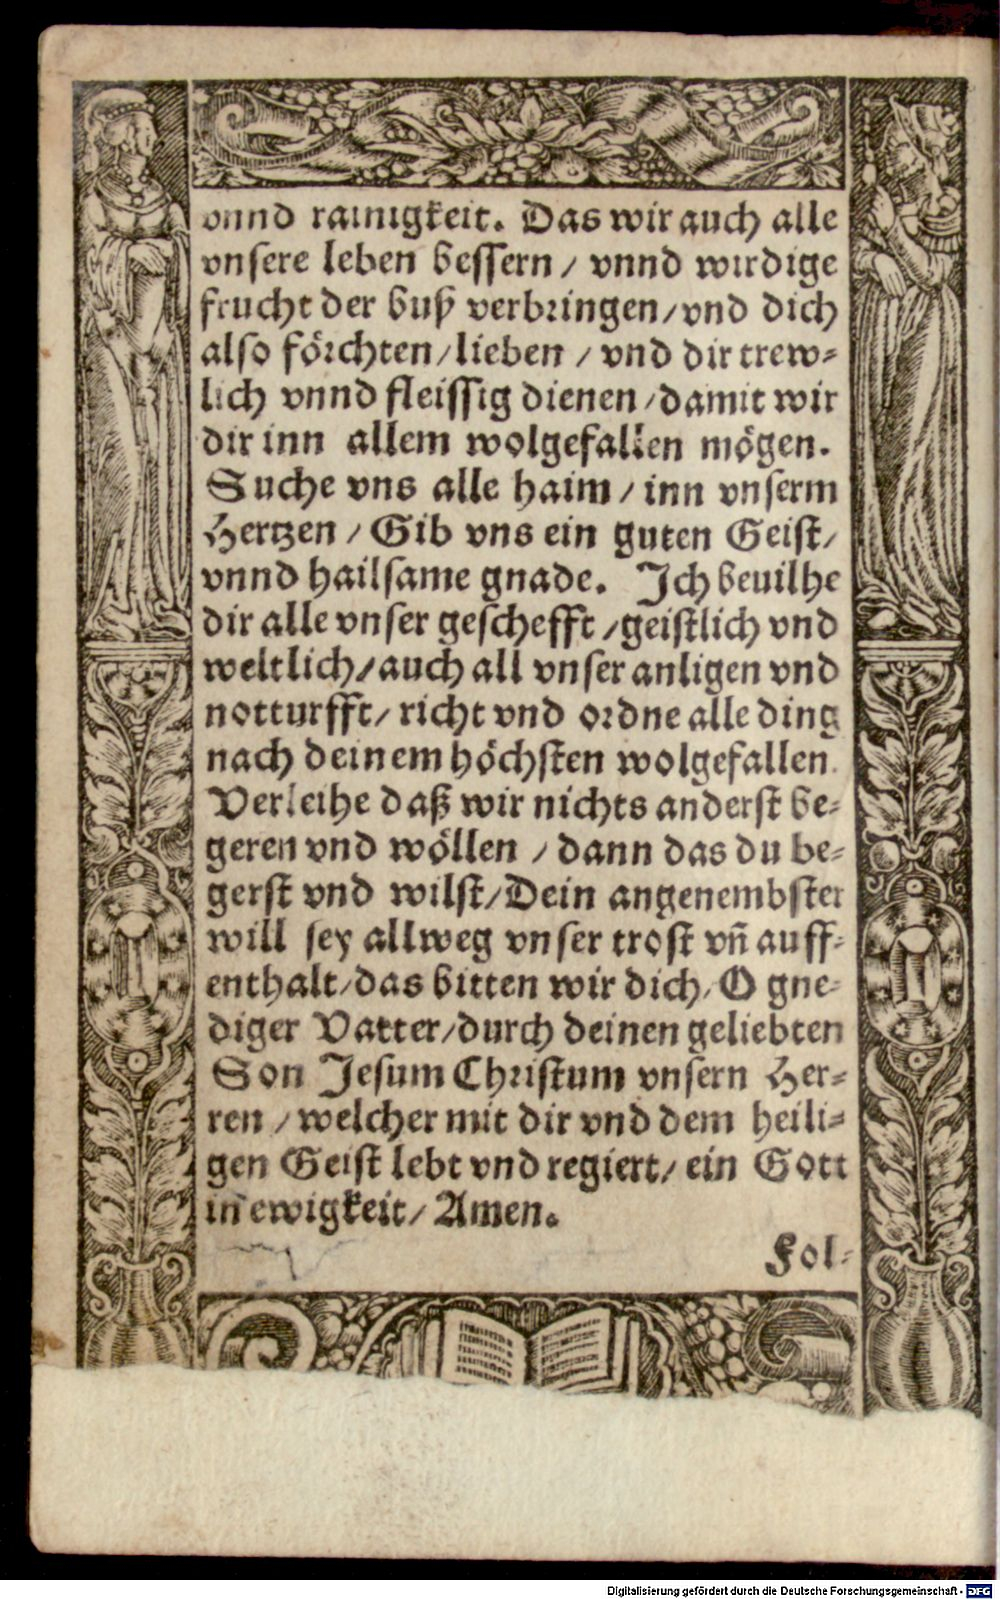 vnnd rainigkeit. Das wir auch alle
vnsere leben bessern / vnnd wirdige
frucht der buß verbringen / vnd dich
also förchten / lieben / vnd dir trew-
lich vnnd fleissig dienen / damit wir
dir inn allem wolgefallen mögen.
Suche vns alle haim / inn vnserm
Hertzen / Gib vns ein guten Geist /
vnnd hailsame gnade. Ich beuilhe
dir alle vnser geschefft / geistlich vnd
weltlich / auch all vnser anligen vnd
notturfft / richt vnd ordne alle ding
nach deinem höchsten wolgefallen.
Verleihe daß wir nichts anderst be-
geren vnd wöllen / dann das du be-
gerst vnd wilst / Dein angenembster
will sey allweg vnser trost vñ auff-
enthalt / das bitten wir dich / O gne-
diger Vatter / durch deinen geliebten
Son Jesum Christum vnsern Her-
ren / welcher mit dir vnd dem heili-
gen Geist lebt vnd regiert / ein Gott
in ewigkeit / Amen.
Fol-
Digitalisierung gefördert durch die Deutsche Forschungsgemeinschaft - DFG